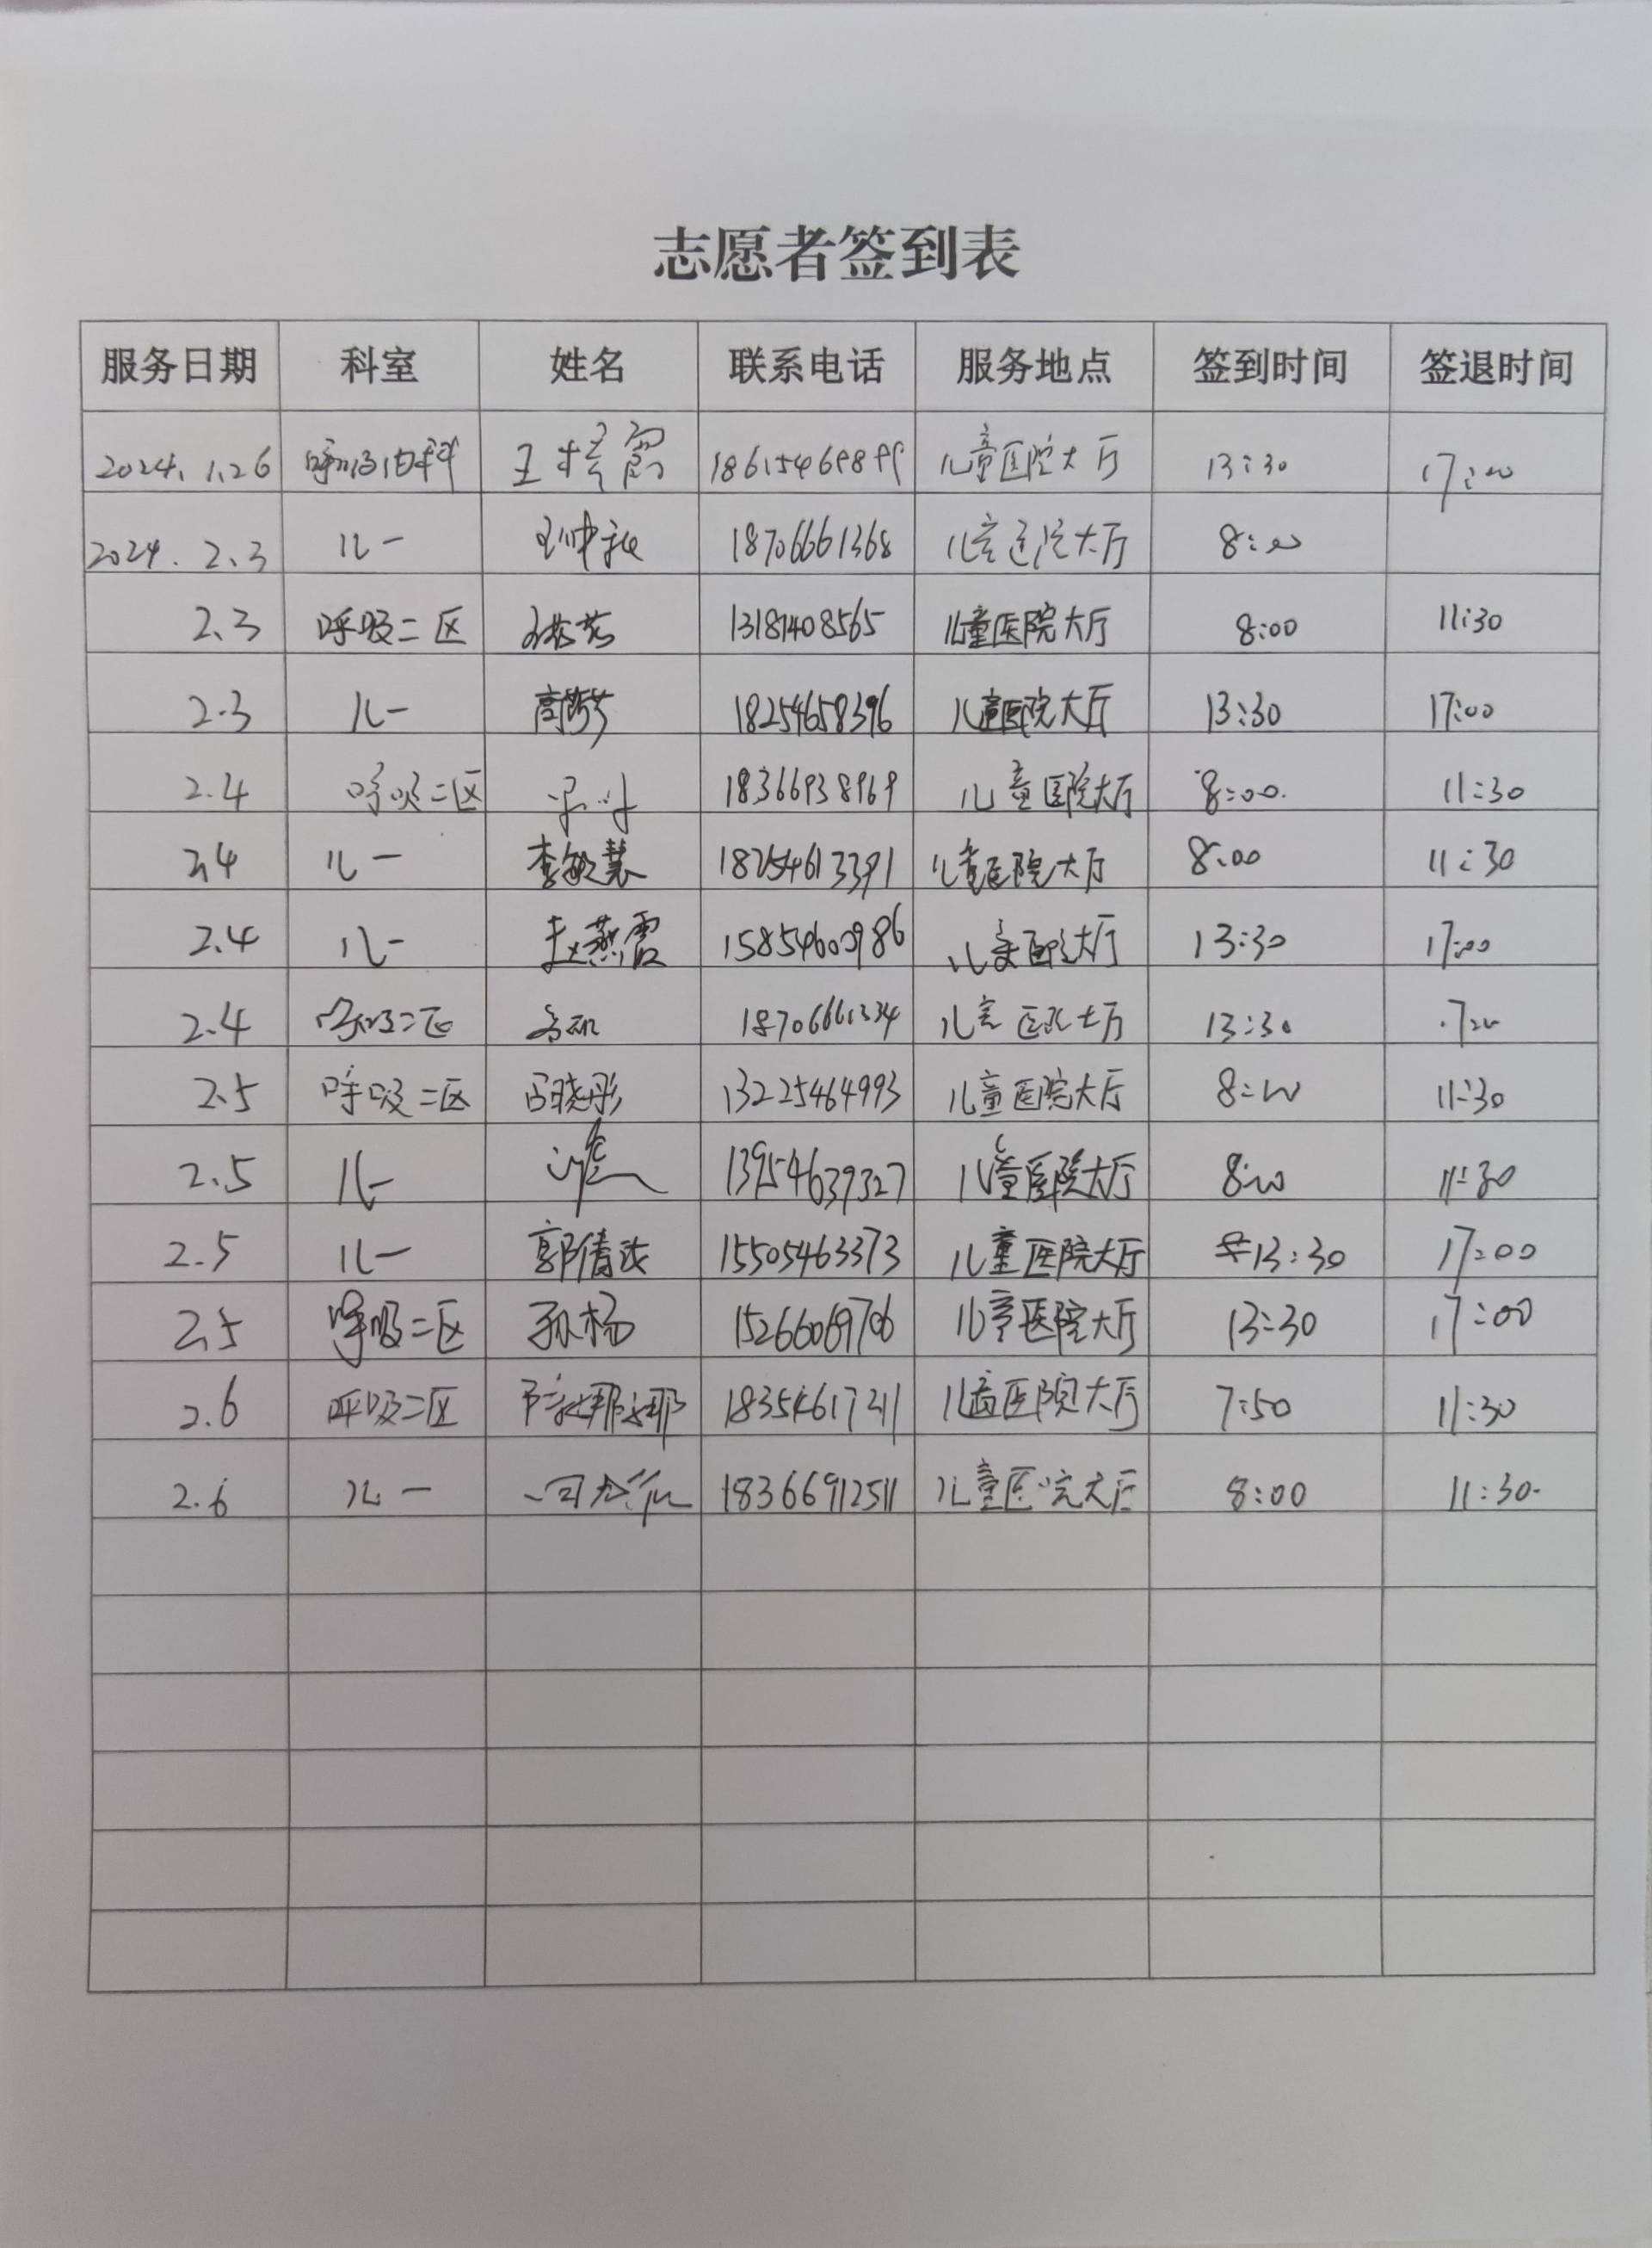 志愿者签到表
服务日期 科室 姓名 联系电话 服务地点 签到时间 签退时间
2024.1.26 呼吸内科 王 霞 儿童医院大厅 13:30 17:00
2024.2.3 儿一 18706661368 儿童医院大厅 8:00
2.3 呼吸二区 13181408565 儿童医院大厅 8:00 11:30
2.3 儿一 18254658396 儿童医院大厅 13:30 17:00
2.4 呼吸二区 18366938969 儿童医院大厅 8:00 11:30
2.4 儿一 李敏慧 18254613391 儿童医院大厅 8:00 11:30
2.4 儿一 赵燕霞 15854600986 儿童医院大厅 13:30 17:00
2.4 呼吸二区 18706661334 儿童医院大厅 13:30
2.5 呼吸二区 13225464993 儿童医院大厅 8:00 11:30
2.5 儿一 13954639327 儿童医院大厅 8:00 11:30
2.5 儿一 郭倩 15505463373 儿童医院大厅 13:30 17:00
2.5 呼吸二区 孙杨 15266069706 儿童医院大厅 13:30 17:00
2.6 呼吸二区 18354617211 儿童医院大厅 7:50 11:30
2.6 儿一 18366912511 儿童医院大厅 8:00 11:30